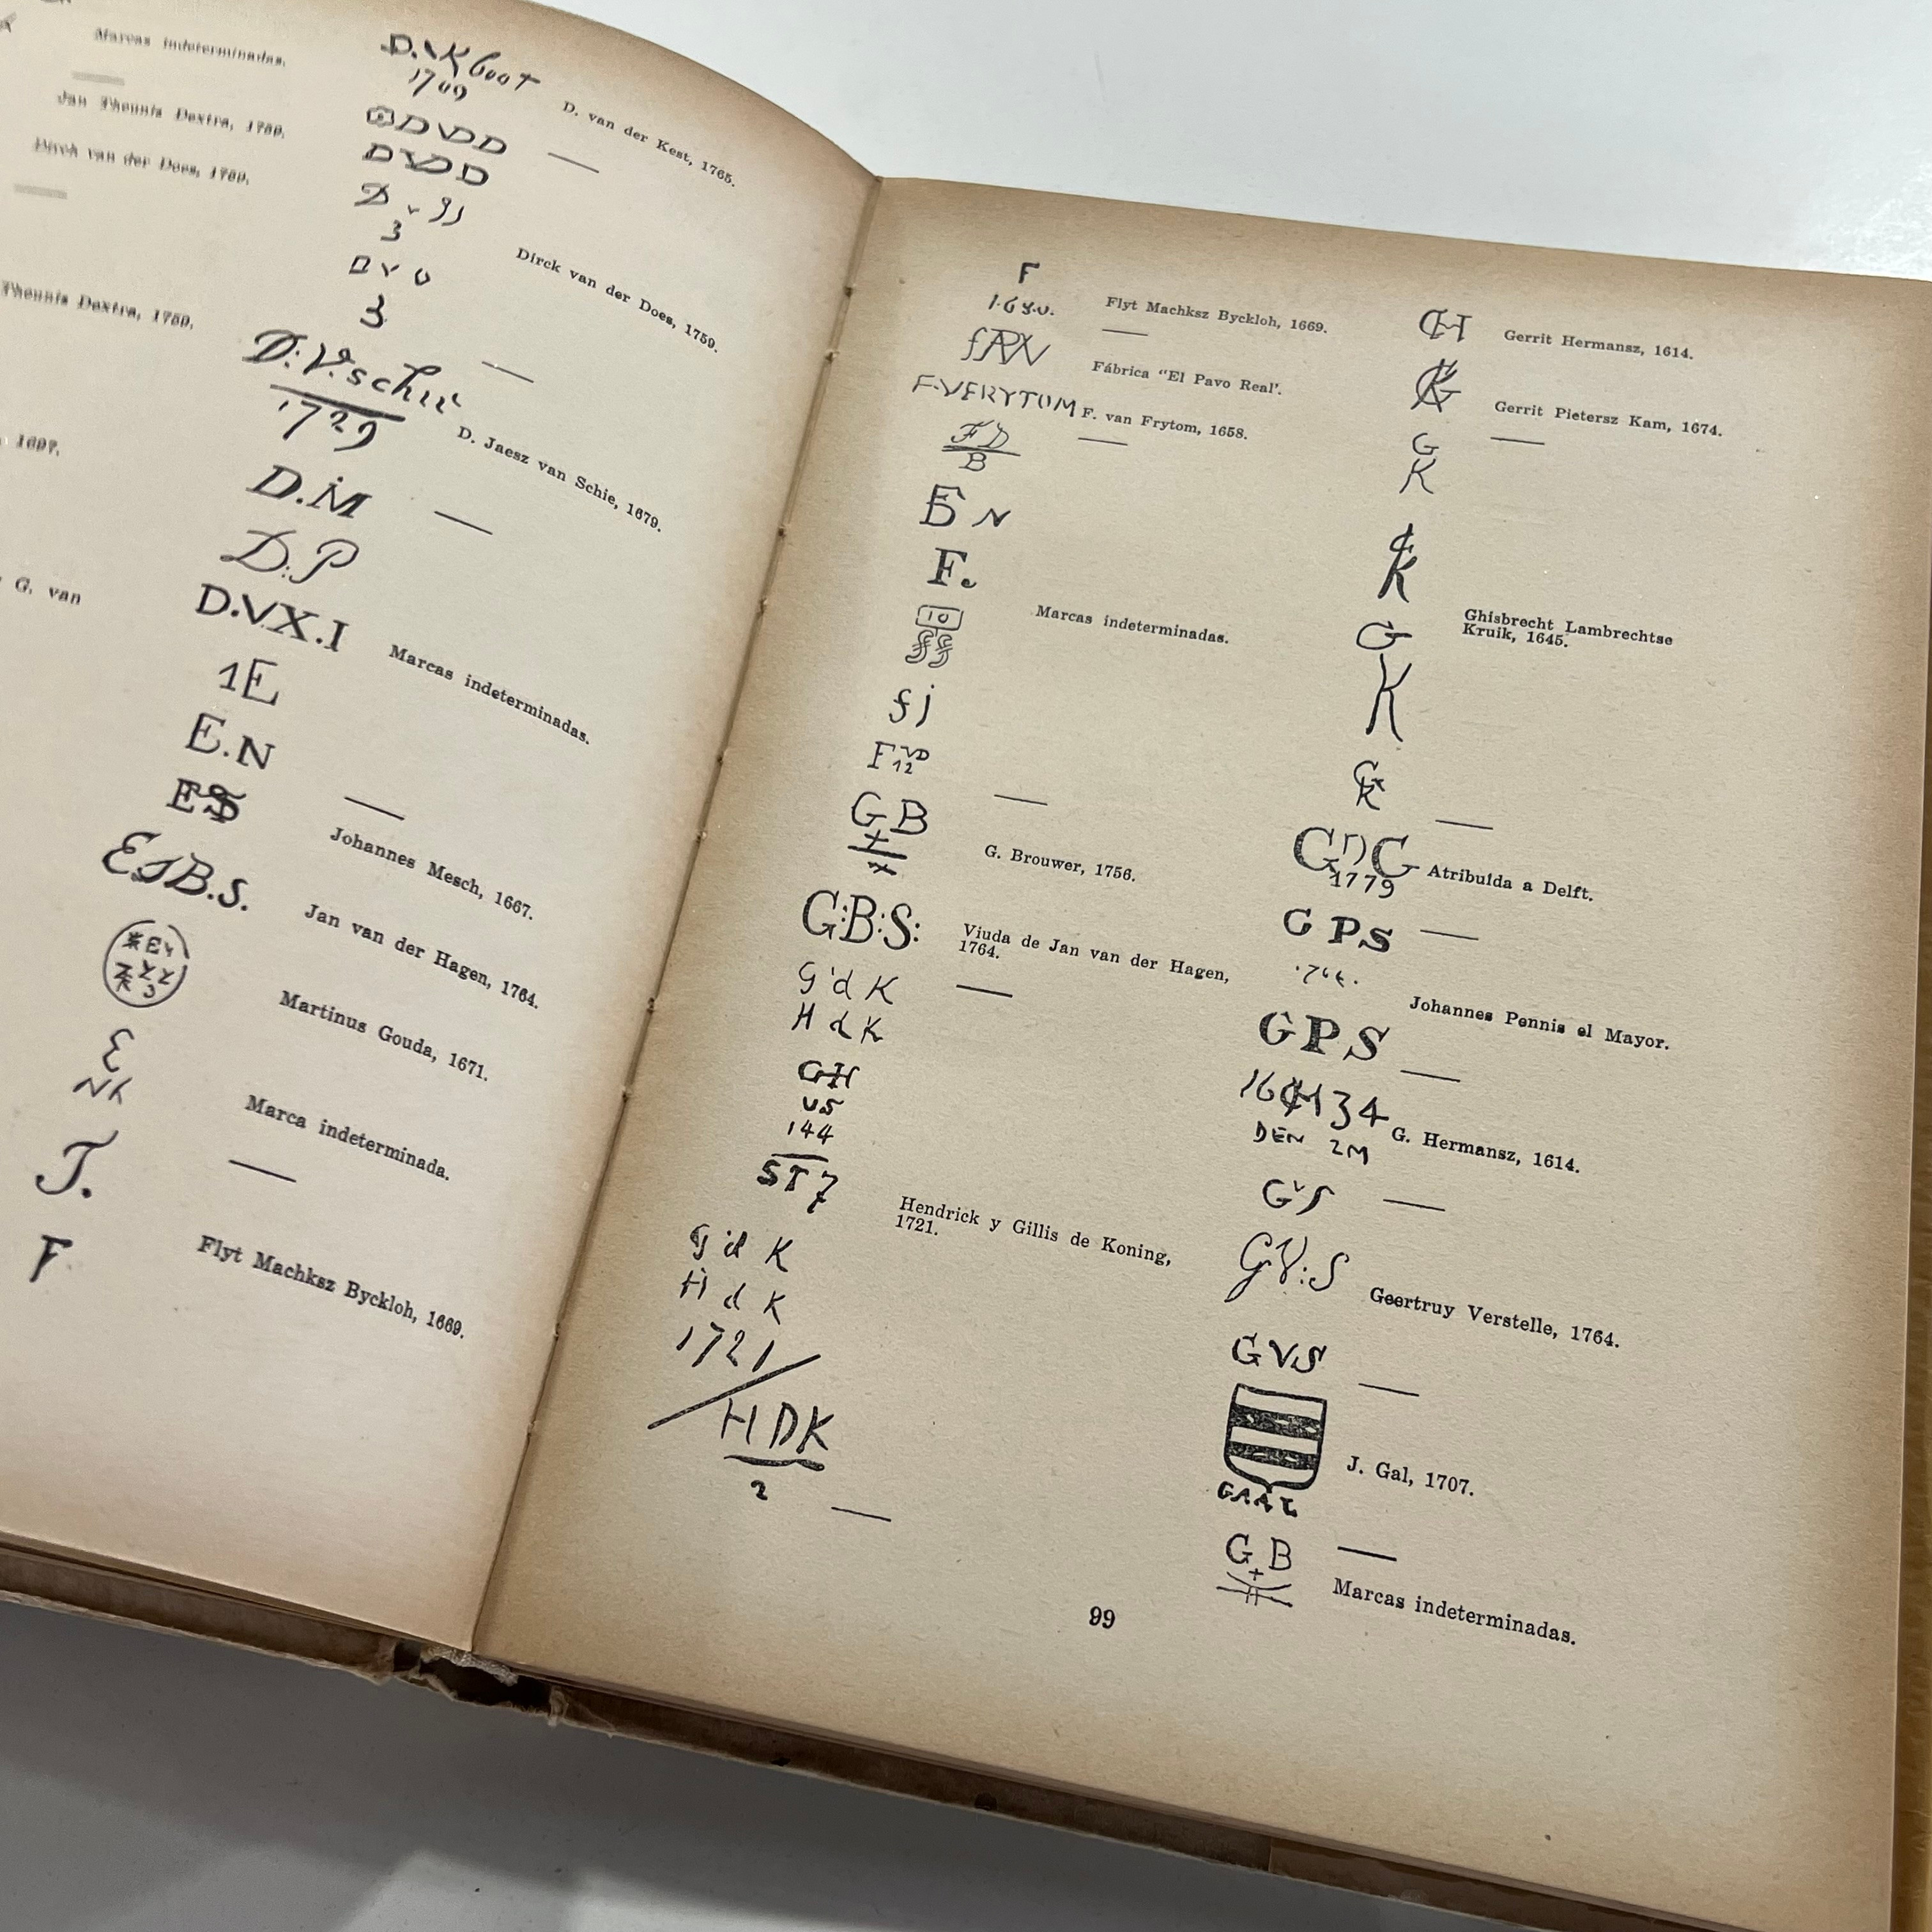 Marcas indeterminadas.
Jan Theunis Dextra, 1759.
Dirch van der Does, 1759.
Theunis Dextra, 1759.
1697.
G. van
1709
D. van der Kest, 1765.
DVDD
DVDD
3
D v D
3
Dirck van der Does, 1759.
1729
D. Jaesz van Schie, 1679.
D.M
D:P
D.VX.I
Marcas indeterminadas.
1E
E.N
Johannes Mesch, 1667.
Jan van der Hagen, 1764.
Martinus Gouda, 1671.
Marca indeterminada.
F
Flyt Machksz Byckloh, 1669.
F
Flyt Machksz Byckloh, 1669.
Fábrica "El Pavo Real'.
F. van Frytom, 1658.
FD
B
F.
10
Marcas indeterminadas.
fj
F VD
12
GB
G. Brouwer, 1756.
G:B:S:
Viuda de Jan van der Hagen,
1764.
G d K
H d K
GH
VS
144
ST
Hendrick y Gillis de Koning,
1721.
G d K
H d K
1721
HDK
2
Gerrit Hermansz, 1614.
Gerrit Pietersz Kam, 1674.
G
K
Ghisbrecht Lambrechtse
Kruik, 1645.
G
K
1779
Atribuída a Delft.
G P S
Johannes Pennis el Mayor.
GPS
DEN 2M
G. Hermansz, 1614.
GvS
GV:S
Geertruy Verstelle, 1764.
GVS
J. Gal, 1707.
G B
Marcas indeterminadas.
99